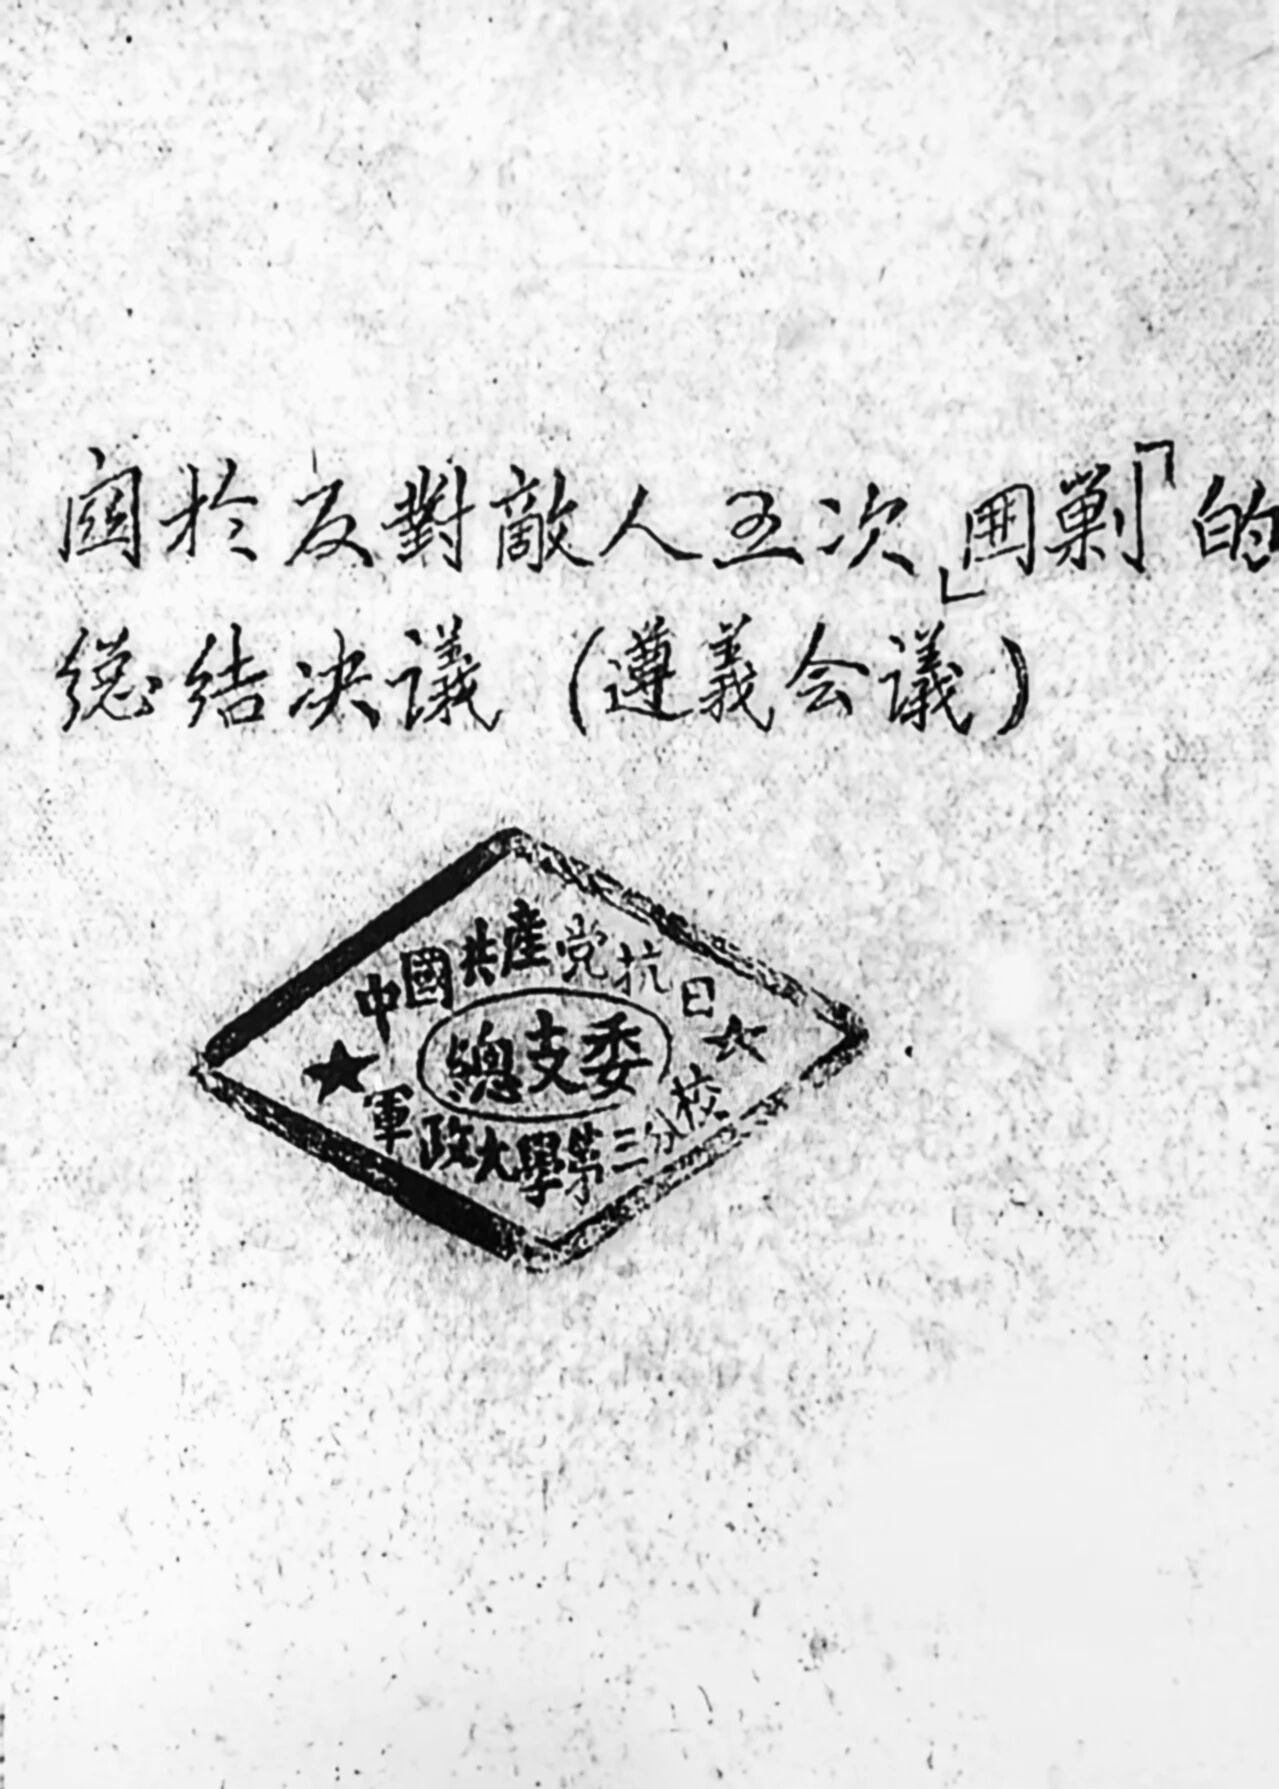 関於反對敵人五次」囲剿「的
總结决议（遵義会议）
中國共產党抗日
總支委
軍政大學第三分校